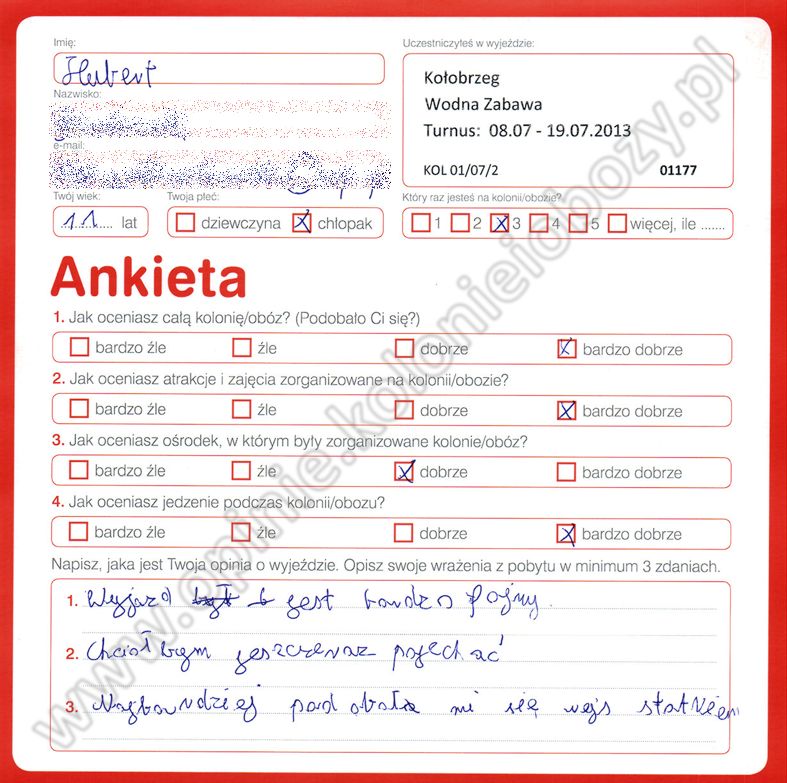 Imię:
Hubert
Nazwisko:
e-mail:
Twój wiek:
11 lat
Twoja płeć:
dziewczyna chłopak
Uczestniczyłeś w wyjeździe:
Kołobrzeg
Wodna Zabawa
Turnus: 08.07 - 19.07.2013
KOL 01/07/2 01177
Który raz jesteś na kolonii/obozie?
1 2 3 4 5 więcej, ile .......
Ankieta
1. Jak oceniasz całą kolonię/obóz? (Podobało Ci się?)
bardzo źle źle dobrze bardzo dobrze
2. Jak oceniasz atrakcje i zajęcia zorganizowane na kolonii/obozie?
bardzo źle źle dobrze bardzo dobrze
3. Jak oceniasz ośrodek, w którym były zorganizowane kolonie/obóz?
bardzo źle źle dobrze bardzo dobrze
4. Jak oceniasz jedzenie podczas kolonii/obozu?
bardzo źle źle dobrze bardzo dobrze
Napisz, jaka jest Twoja opinia o wyjeździe. Opisz swoje wrażenia z pobytu w minimum 3 zdaniach.
1. Wyjazd był jest bardzo fajny.
2. Chciałbym jeszczeraz pojechać
3. Najbardziej podobał mi się rejs statkiem
www.opinie.kolonieiobozy.pl